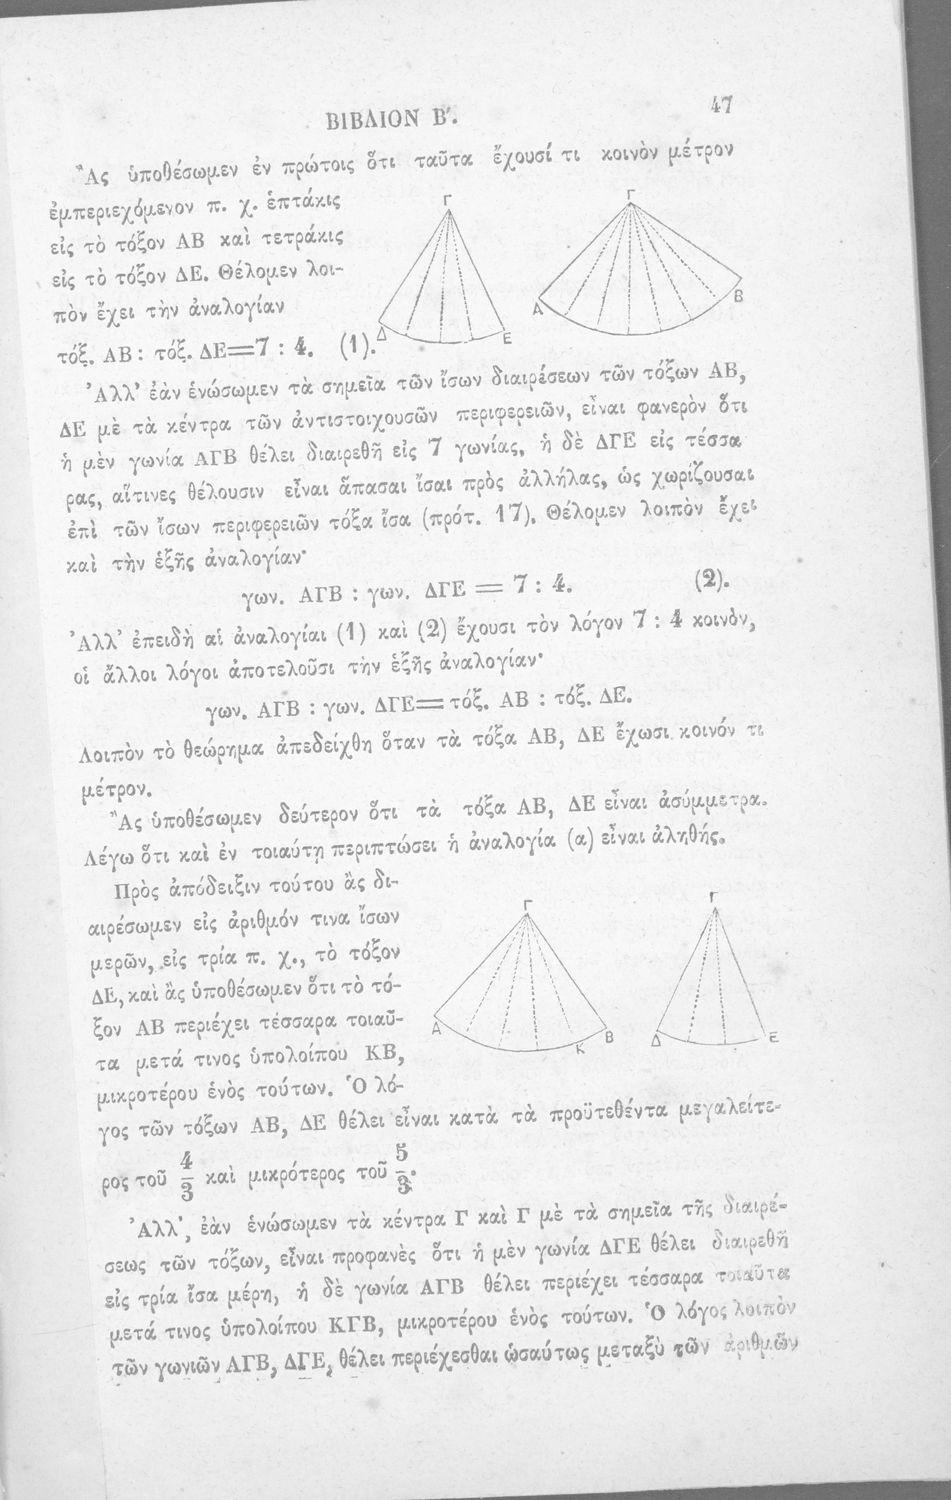 ΒΙΒΛΙΟΝ Β΄. 47
Ἂς ὑποθέσωμεν ἐν πρώτοις ὅτι ταῦτα ἔχουσί τι κοινὸν μέτρον
ἐμπεριεχόμενον π. χ. ἑπτάκις
εἰς τὸ τόξον ΑΒ καὶ τετράκις
εἰς τὸ τόξον ΔΕ. Θέλομεν λοι-
πὸν ἔχει τὴν ἀναλογίαν
τόξ. ΑΒ : τόξ. ΔΕ=7 : 4. (1).
Γ
Δ Ε
Γ
Α Β
Ἀλλ’ ἐὰν ἑνώσωμεν τὰ σημεῖα τῶν ἴσων διαιρέσεων τῶν τόξων ΑΒ,
ΔΕ μὲ τὰ κέντρα τῶν ἀντιστοιχουσῶν περιφερειῶν, εἶναι φανερὸν ὅτι
ἡ μὲν γωνία ΑΓΒ θέλει διαιρεθῆ εἰς 7 γωνίας, ἡ δὲ ΔΓΕ εἰς τέσσα
ρας, αἵτινες θέλουσιν εἶναι ἅπασαι ἴσαι πρὸς ἀλλήλας, ὡς χωρίζουσαι
ἐπὶ τῶν ἴσων περιφερειῶν τόξα ἴσα (πρότ. 17). Θέλομεν λοιπὸν ἔχει
καὶ τὴν ἑξῆς ἀναλογίαν·
γων. ΑΓΒ : γων. ΔΓΕ = 7 : 4. (2).
Ἀλλ’ ἐπειδὴ αἱ ἀναλογίαι (1) καὶ (2) ἔχουσι τὸν λόγον 7 : 4 κοινὸν,
οἱ ἄλλοι λόγοι ἀποτελοῦσι τὴν ἑξῆς ἀναλογίαν·
γων. ΑΓΒ : γων. ΔΓΕ= τόξ. ΑΒ : τόξ. ΔΕ.
Λοιπὸν τὸ θεώρημα ἀπεδείχθη ὅταν τὰ τόξα ΑΒ, ΔΕ ἔχωσι κοινόν τι
μέτρον.
Ἂς ὑποθέσωμεν δεύτερον ὅτι τὰ τόξα ΑΒ, ΔΕ εἶναι ἀσύμμετρα.
Λέγω ὅτι καὶ ἐν τοιαύτῃ περιπτώσει ἡ ἀναλογία (α) εἶναι ἀληθής.
Πρὸς ἀπόδειξιν τούτου ἂς δι-
αιρέσωμεν εἰς ἀριθμόν τινα ἴσων
μερῶν, εἰς τρία π. χ., τὸ τόξον
ΔΕ, καὶ ἂς ὑποθέσωμεν ὅτι τὸ τό-
ξον ΑΒ περιέχει τέσσαρα τοιαῦ-
τα μετά τινος ὑπολοίπου ΚΒ,
μικροτέρου ἑνὸς τούτων. Ὁ λό-
Γ
Α Κ Β
Γ
Δ Ε
γος τῶν τόξων ΑΒ, ΔΕ θέλει εἶναι κατὰ τὰ προϋτεθέντα μεγαλείτε-
ρος τοῦ 4/3 καὶ μικρότερος τοῦ 5/3.
Ἀλλ’, ἐὰν ἑνώσωμεν τὰ κέντρα Γ καὶ Γ μὲ τὰ σημεῖα τῆς διαιρέ-
σεως τῶν τόξων, εἶναι προφανὲς ὅτι ἡ μὲν γωνία ΔΓΕ θέλει διαιρεθῆ
εἰς τρία ἴσα μέρη, ἡ δὲ γωνία ΑΓΒ θέλει περιέχει τέσσαρα τοιαῦτα
μετά τινος ὑπολοίπου ΚΓΒ, μικροτέρου ἑνὸς τούτων. Ὁ λόγος λοιπὸν
τῶν γωνιῶν ΑΓΒ, ΔΓΕ, θέλει περιέχεσθαι ὡσαύτως μεταξὺ τῶν ἀριθμῶν